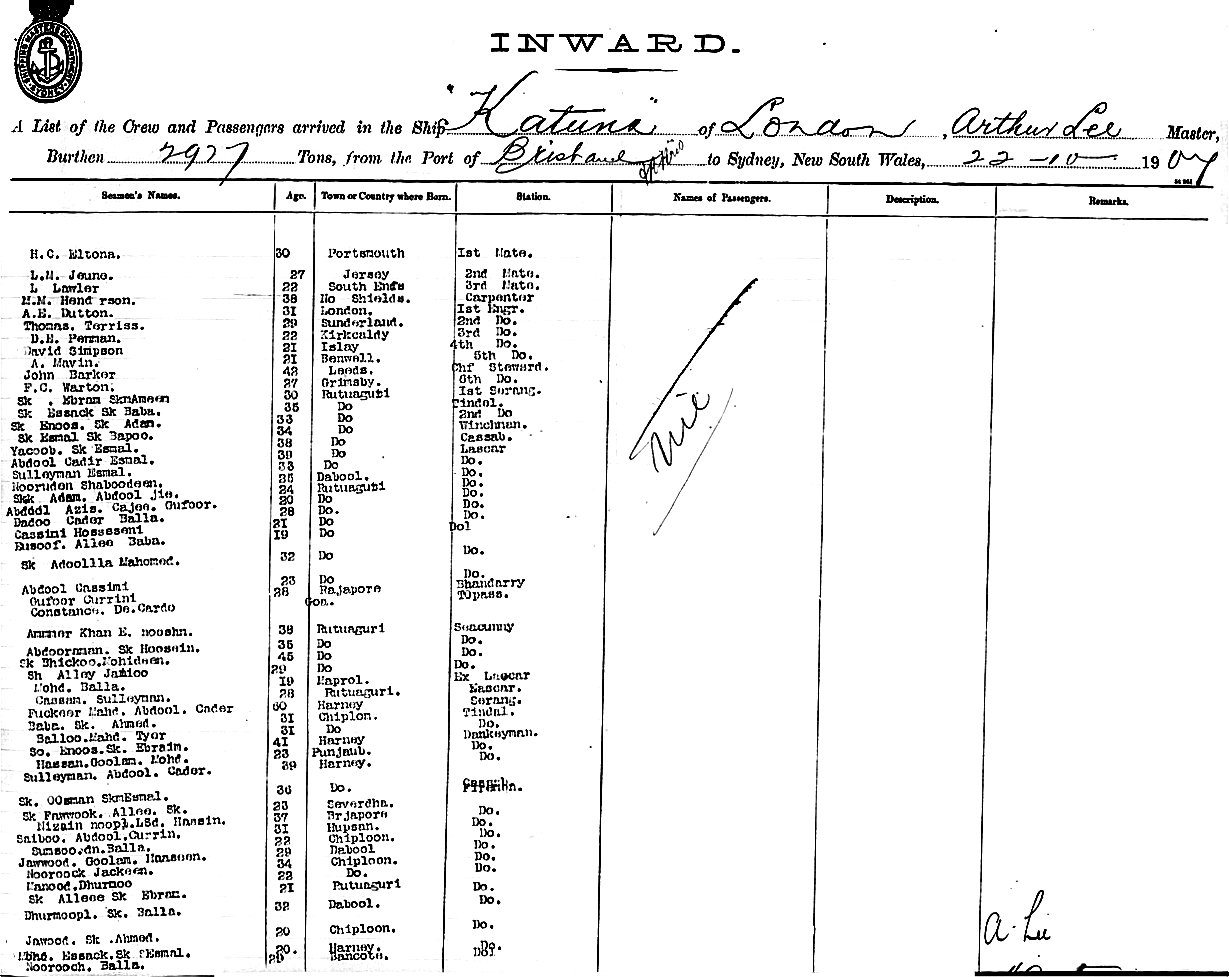 SHIPPING MASTERS DEPARTMENT SYDNEY
INWARD.
A List of the Crew and Passengers arrived in the Ship "Katuna" of London, Arthur Lee Master,
Burthen 2927 Tons, from the Port of Brisbane to Sydney, New South Wales, 22-10- 1907
Seamen's Names. Age. Town or Country where Born. Station. Names of Passengers. Description. Remarks.
H.C. Eltona. 30 Portsmouth Ist Mate.
L.M. Jeune. 27 Jersey 2nd Mate.
L Lawler 22 South Ends 3rd Mate.
M.M. Hend rson. 38 No Shields. Carpenter
A.E. Dutton. 3I London. Ist Engr.
Thomas. Terriss. 29 Sunderland. 2nd Do.
D.E. Perman. 22 Kirkcaldy 3rd Do.
David Simpson 2I Islay 4th Do.
A. Mavin. 2I Benwell. 5th Do.
John Barker 42 Leeds. Chf Steward.
F.C. Warton. 27 Grimsby. 6th Do.
Sk . Ebram SkmAmeen 30 Rutuaguti Ist Serang.
Sk Essack Sk Baba. 35 Do Tindel.
Sk Enoos. Sk Adam. 33 Do 2nd Do
Sk Esmal Sk Bapoo. 34 Do Winchman.
Yacoob. Sk Esmal. 38 Do Cassab.
Abdool Cadir Esmal. 39 Do Lascar
Sulleyman Esmal. 33 Do Do.
Noorudon Shaboodeen. 35 Dabool. Do.
Skk Adam. Abdool Jie. 24 Rutuaguti Do.
Abdddl Azis. Cajee. Gufoor. 20 Do Do.
Dadoo Cader Balla. 28 Do. Do.
Cassini Hosseseni 2I Do Do.
Eusoof. Allee Baba. I9 Do Dol
Sk Adoollla Mahomed. 32 Do Do.
Abdool Cassimi 23 Do Do.
Gufoor Currini 28 Rajapore Bhandarry
Constance. De.Cardo Gon. Topass.
Ammer Khan E. nooshn. 38 Rutuaguri Seacunny
Abdoorman. Sk Hoosein. 35 Do Do.
Sk Bhickoo.Mohideen. 45 Do Do.
Sh Alley Jamioo 29 Do Do.
Mohd. Balla. I9 Maprol. Ex Lascar
Cassam. Sulleyman. 28 Rutuaguri. Kascar.
Fuckeer Mahd. Abdool. Cader 60 Harney Serang.
Baba. Sk. Ahmed. 3I Chiplon. Tindal.
Balloo.Mahd. Tyor 3I Do Do.
So. Enoos.Sk. Ebraim. 4I Harney Dankeyman.
Hassan.Goolam. Mohd. 23 Punjaub. Do.
Sulleyman. Abdool. Cader. 39 Harney. Do.
Sk. OOsman SkmEsmal. 36 Do.
Sk Fawwook. Allee. Sk. 23 Severdha. Do.
Nizain noopl.LSd. Hansin. 37 Brjapore Do.
Saiboo. Abdool.Currin. 3I Hupsan. Do.
Sumsoo.dn.Balla. 22 Chiploon. Do.
Jawwood. Goolam. Hansoon. 29 Dabool Do.
Nooroock Jackeen. 34 Chiploon. Do.
Manood.Dhurmoo 22 Do. Do.
Sk Alleee Sk Ebram. 2I Rutuaguri Do.
Dhurmoopl. Sk. Balla. 32 Dabool. Do.
Jawood. Sk .Ahmed. 20 Chiploon. Do.
Mohd. Essack.Sk SEsmal. 20. Harney. Do.
Noorooch. Balla. 29 Bancote. Do.
Nil
A. Lee